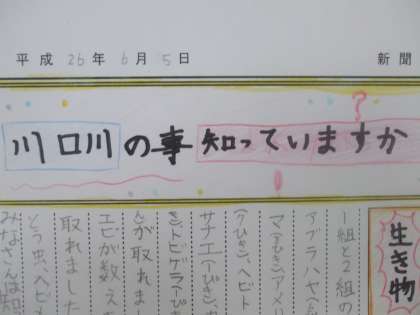 平成26年6月5日 新聞
川口川の事知っていますか
生き物
1組と2組の
アブラハヤ(
マ(1ぴき)アメリ
(1ぴき)、ヘビト
サナエ(1ぴき)、カ
き)、トビゲラ(1ぴき
んが取れまし
エビが数え
取れました
とう虫、ヘビも
みなさんは知